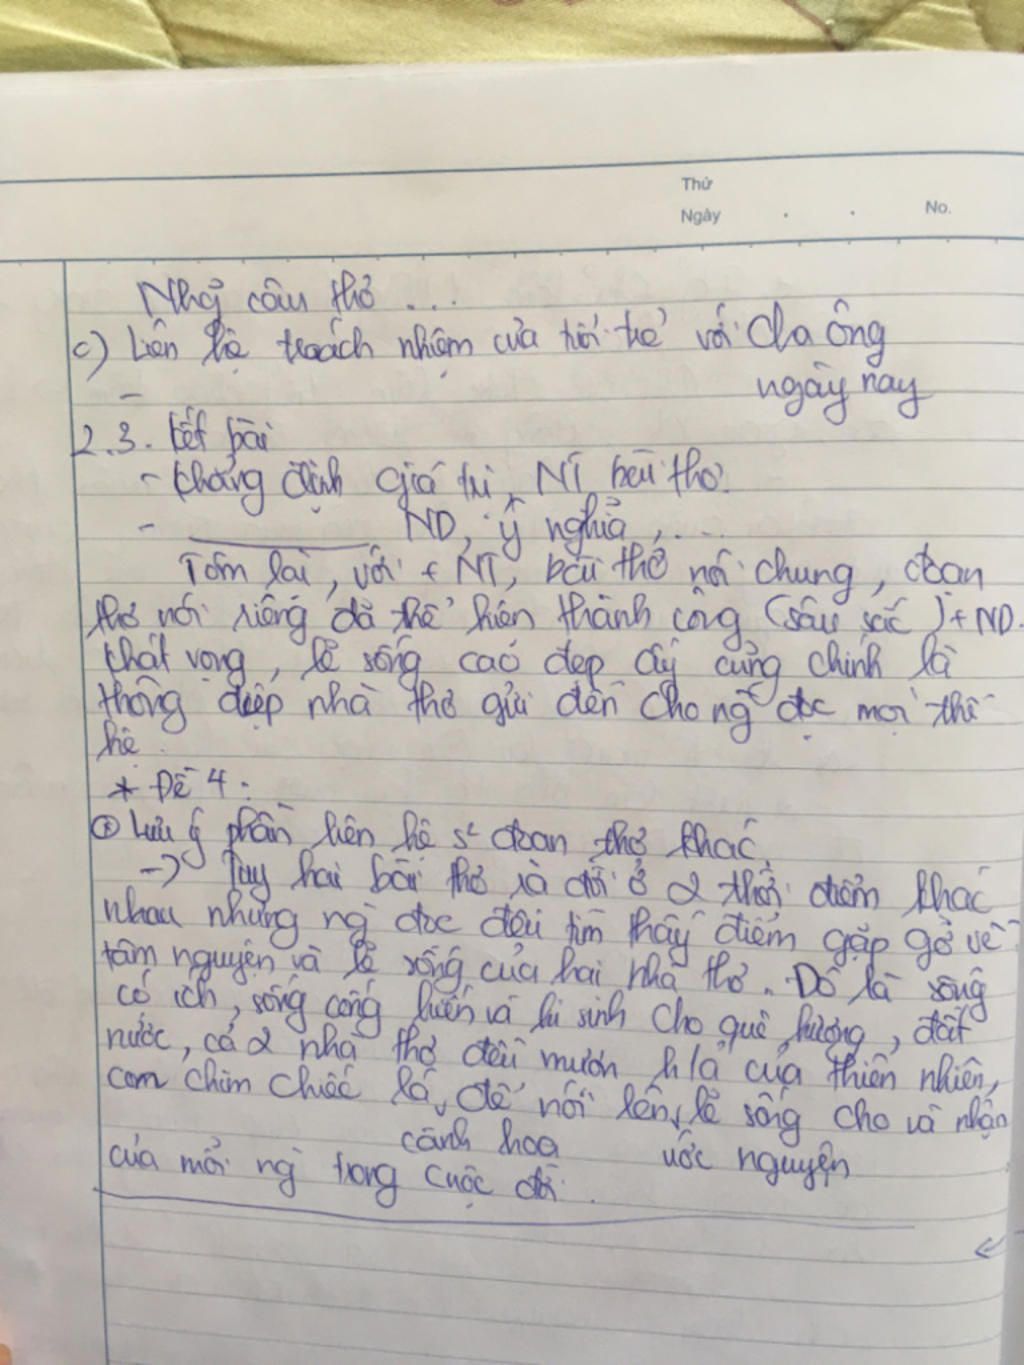 Thứ
Ngày . . No.
Nhạ câu thơ ...
c) Liên hệ trách nhiệm của tuổi trẻ với cha ông
ngày nay
-
2.3. Kết bài
- Khẳng định giá trị NT bài thơ.
- ND, ý nghĩa, ...
Tóm lại, với + NT, bài thơ nói chung, đoạn
thơ nói riêng đã thể hiện thành công (sâu sắc) + ND.
Khát vọng, lẽ sống cao đẹp ấy cũng chính là
thông điệp nhà thơ gửi đến cho ng đọc mọi thế
hệ.
* Đề 4:
Lưu ý phần liên hệ s² đoạn thơ khác.
-> Tuy hai bài thơ ra đời ở 2 thời điểm khác
nhau nhưng ng đọc đều tìm thấy điểm gặp gỡ về
tâm nguyện và lẽ sống của hai nhà thơ. Đó là sống
có ích, sống cống hiến và hi sinh cho quê hương, đất
nước, cả 2 nhà thơ đều mượn h/ả của thiên nhiên,
con chim chiếc lá, để nói lên lẽ sống cho và nhận
cành hoa ước nguyện
của mỗi ng trong cuộc đời.